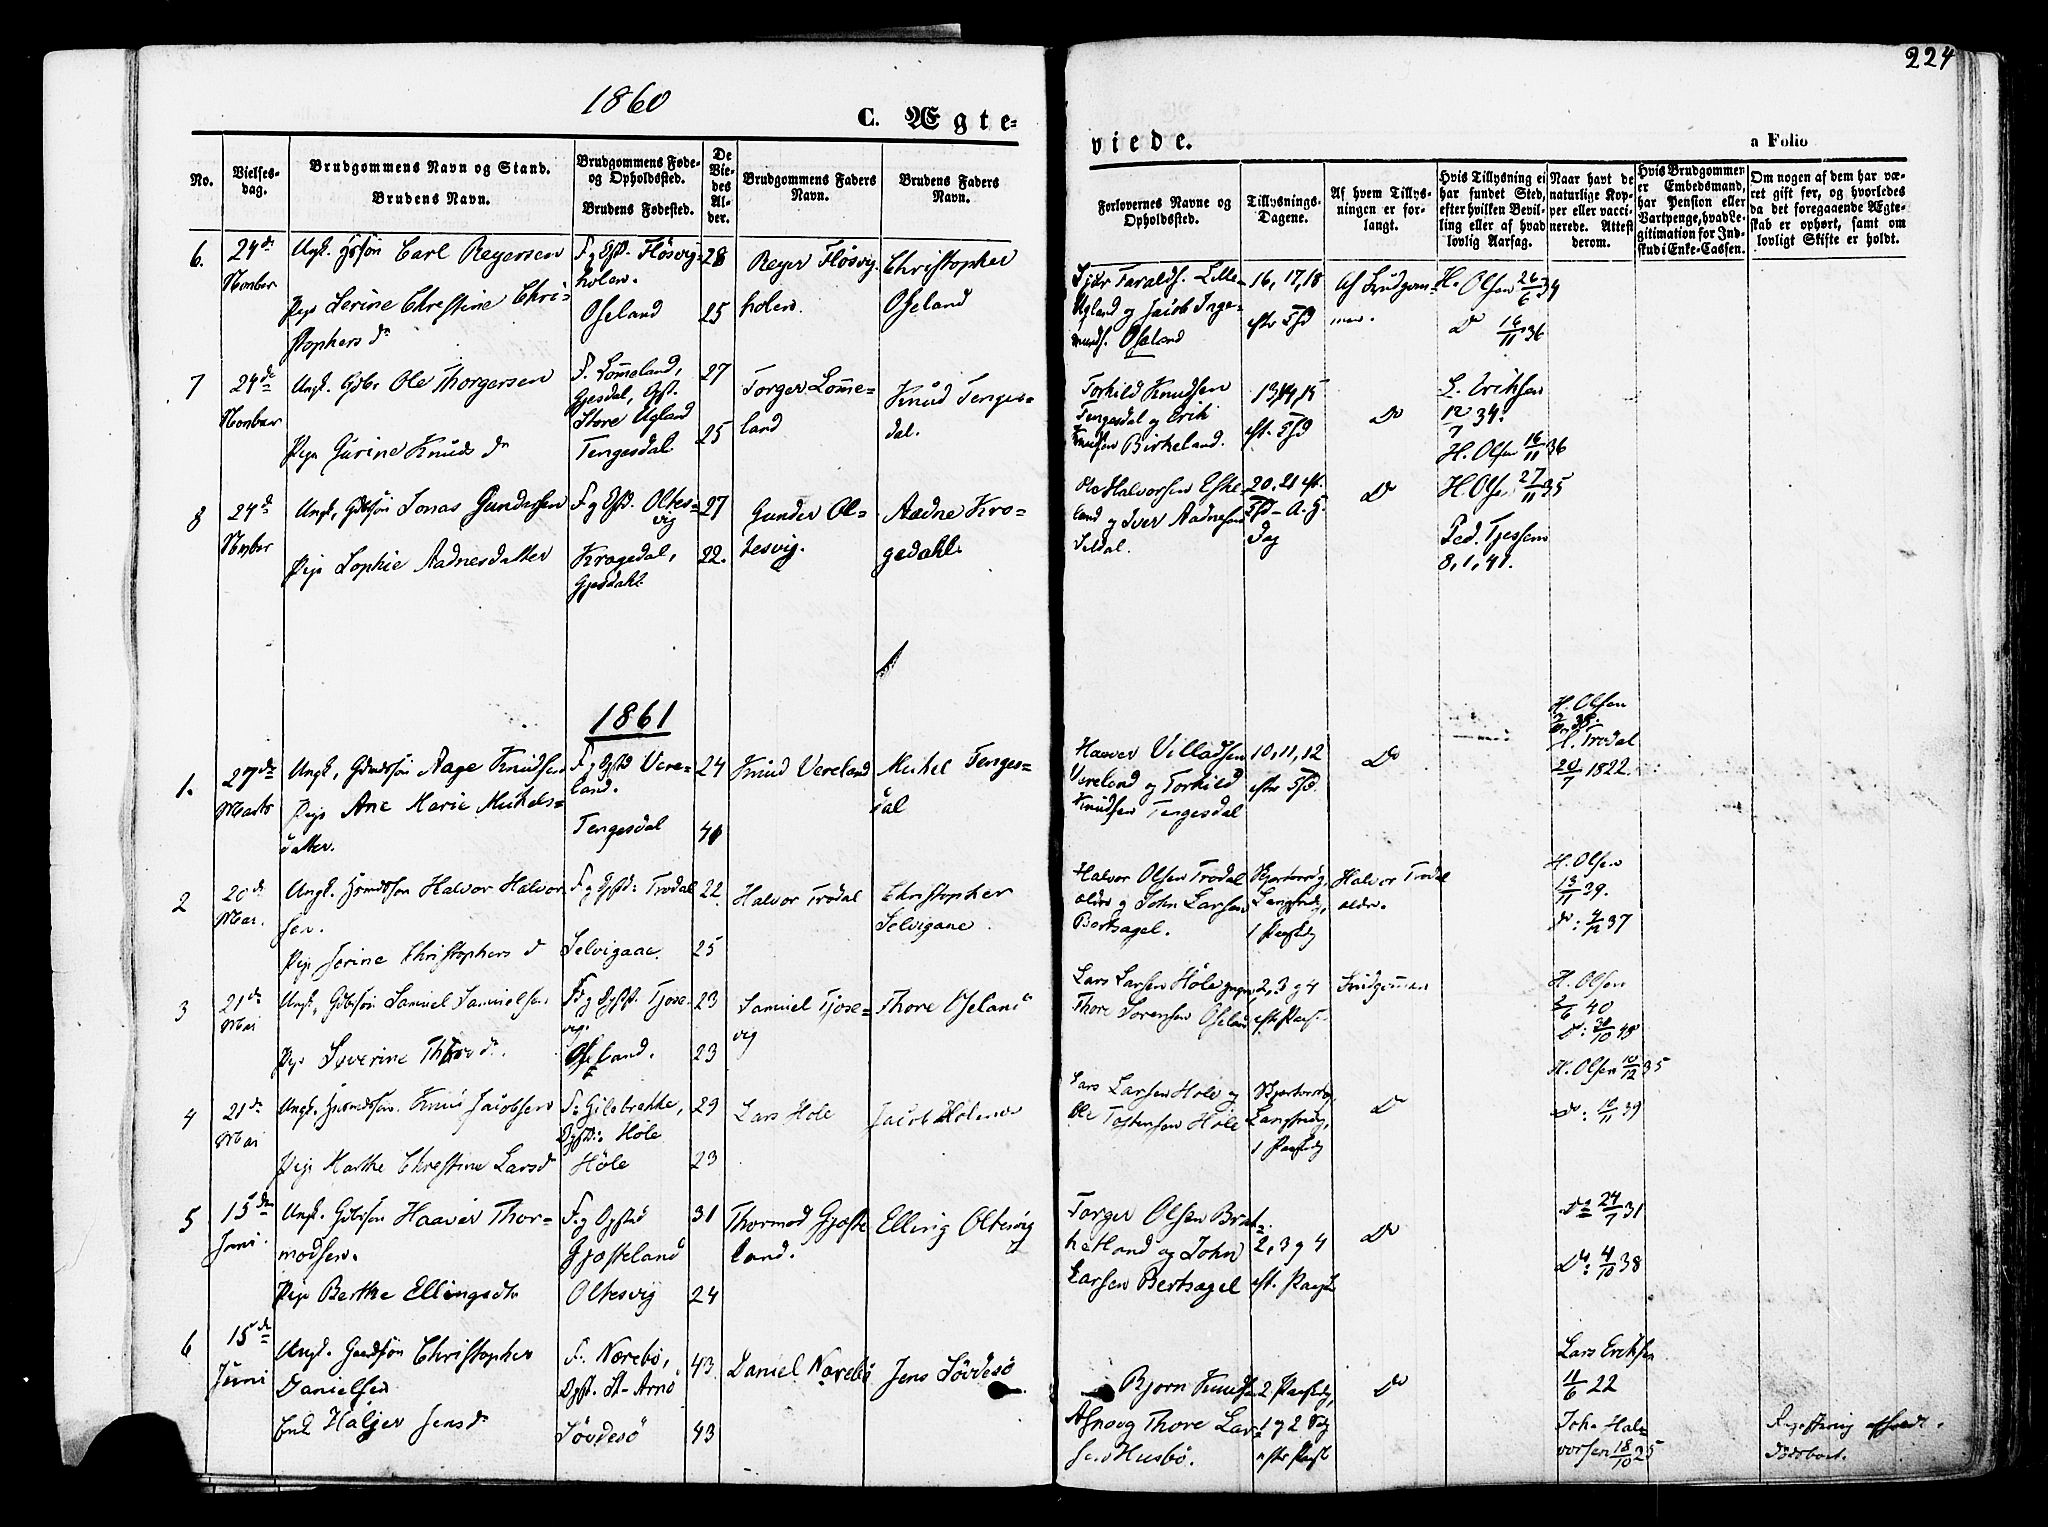 224
1860
C. Ægte-
viede.
a Folio
No.
Vielses-
dag.
Brudgommens Navn og Stand.
Brudens Navn.
Brudgommens Føde-
og Opholdssted.
Brudens Fødested.
De
Vie-
des
Al-
der.
Brudgommens Faders
Navn.
Brudens Faders
Navn.
Forlovernes Navne og
Opholdssted.
Tillysnings-
Dagene.
Af hvem Tillys-
ningen er for-
langt.
Hvis Tillysning ei
har fundet Sted,
efter hvilken Bevil-
ling eller af hvad
lovlig Aarsag.
Naar havt de
naturlige Kop-
per eller vacci-
nerede. Attest
derom.
Hvis Brudgommen
er Embedsmand,
har Pension eller
Vartpenge, hvad Le-
gitimation for Ind-
skud i Enke-Cassen.
Om nogen af dem har væ-
ret gift før, og hvorledes
da det foregaaende Ægte-
skab er ophørt, samt om
lovligt Skifte er holdt.
6.
24de
Novbr
Ungk. Carl Reyersen
Pige Serine Christine Chri-
stophers d
F. og Opst. Flösvig-
holen.
Oseland
28
25
Reyer Flösvig-
holen.
Christopher
Oseland
Taralds. Lille
Ugland og Jacob Inge-
munds. Oseland
16, 17, 18
eftr Tfd
Af Brudgom-
men.
H. Olsen 26/6 34
Do 16/11 36
7
24de
Novbr
Ungk. Gbr Ole Thorgersen
Pige Gurine Knuds d
F. Lomeland,
Gjesdal, Opst.
Store Ugland
Tengesdal
27
25
Torger Lome-
land
Knud Tenges-
dal.
Torkild Knudsen
Tengesdal og Erik
Knudsen Birkeland.
13, 14, 15
eft. Tfd
Do
L. Eriksen
12/7 34.
H. Olsen 16/11 36
8
24de
Novbr
Ungk. Gbrsön Jonas Gundersen
Pige Sophie Aadnesdatter
F. og Opst. Oltes-
vig
Kragedal,
Gjesdahl.
27
22.
Gunder Ol-
tesvig.
Aadne Kra-
gedahl.
Ole Halvorsen Eske-
land og Iver Aadnesen
Seldal.
20, 21 eft.
Tfd - A. H.
Dag
Do
H. Olsen 27/11 35
Ped. Tjessem
8, 1, 41.
1861
1.
27de
Marts
Ungk. Aage Knudsen
Pige Ane Marie Mikels-
datter.
F. og Opst Vere-
land.
Tengesdal
24
Knud Vereland
Mikel Tenges-
dal
Haaver Villadsen
Vereland og Torkild
Knudsen Tengesdal
10, 11, 12
eftr Tfd.
Do
H. Olsen
H. Trodal
20/7 1822.
2
20de
Mai.
Ungk. Halvor Halvor-
sen.
Pige Serine Christophers d
F. og Opst: Trodal
Selvigaae.
22
25
Halvor Trodal
Christopher
Selvigane
Halvor Olsen Trodal
ældre og John Larsen
Bertsagel.
1 Paaskdg
Halvor Trodal
ældr.
H. Olsen
13/11 39.
do: 37
3
21de
Mai
Ungk. Gbrsön Samuel Samuelsen
Pige Severine Thore d.
F. og Opst. Tjose-
vig.
Oseland.
23
23
Samuel Tjose-
vig
Thore Oseland
Lars Larsen Höle
Thore Sorensen Oseland
2, 3 og 4
eftr Paask.
Brudgommen
H. Olsen
2/6 40
Do: 30/10 48
4
21de
Mai
Ungk. Knud Jacobsen
Pige Marthe Christine Larsd
F. Gilebrekke,
Opst: Höle
Höle
29
23
Lars Höle
Jacob
Lars Larsen Höle og
Ole Tostensen Höle
1 Paaskdg
Do
H. Olsen 10/12 35
Do: 10/11 39
5
15de
Juni.
Ungk. Gbrsön Haaver Thor-
modsen.
Pige Berthe Ellingsdtr
F. og Opsted
Gjosteland
Oltesvig
31
24
Thormod Gjoste
land.
Elling Oltesvig
Torger Olsen Brat-
hetland og John
Larsen Bertsagel
2, 3 og 4
eft. Paask
Do
Do 24/7 31
Do: 4/10 38
6
15de
Juni
Ungk. Christopher
Danielsen
Enk. Jens d
F. Nærebö,
Opst. St- Arnö
Sövdesö
43
43
Daniel Nærebö
Jens Sövdesö
Bjorn Knudsen
Thore Lar-
sen Husbö.
2 Paaskdg,
1 og 2 Sdg
efter Paask
Do
Lars Eriksen
11/6 22
John Hal-
vorsen 18/10 25